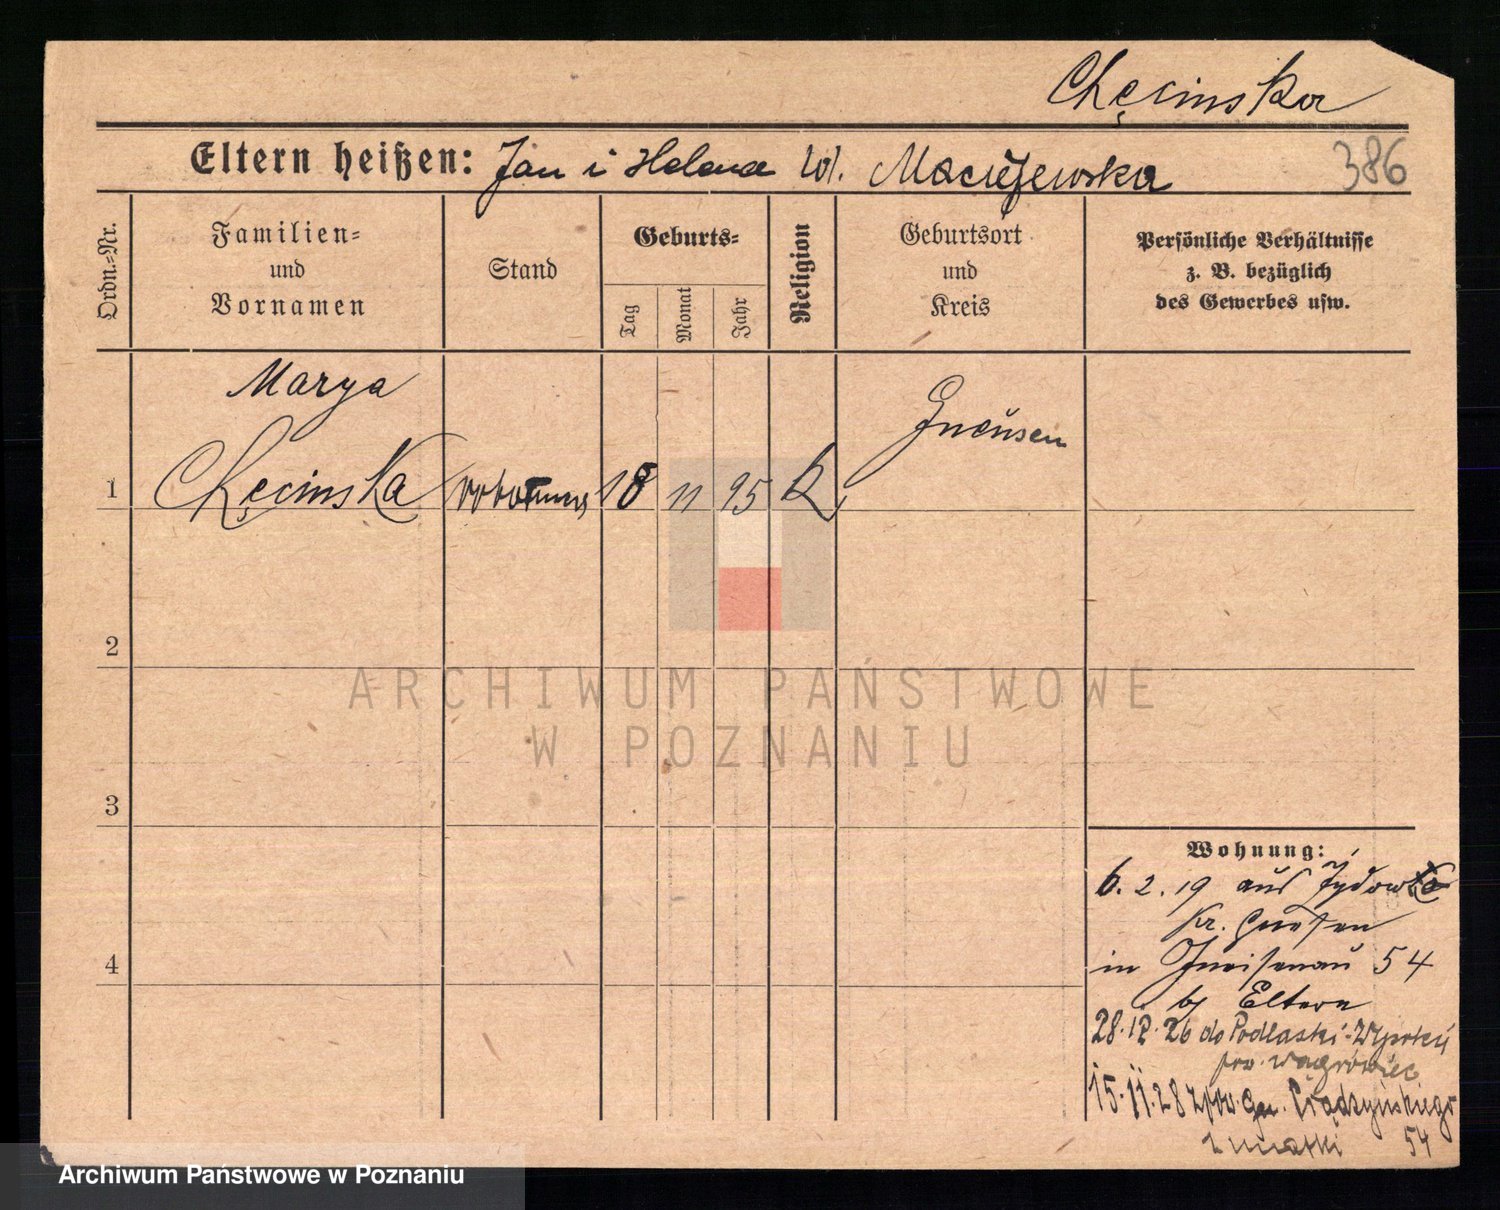 Chęcinska
Eltern heißen: Jan i Helena W. Maciejewska
386
Ordn.-Nr.
Familien-
und
Vornamen
Stand
Geburts-
Tag
Monat
Jahr
Religion
Geburtsort
und
Kreis
Persönliche Verhältnisse
z. B. bezüglich
des Gewerbes usw.
Marya
1 Chęcinska 18 11 95 K
Gneusen
2
3
4
Wohnung:
6. 2. 19 aus
Kr. Gnesen
in Gneisenau 54
by Eltern
28.12.26 do Podlaski-Wysokij
pow. Wągrówiec
15.11.28 Prądzyńskiego
z matki 54
ARCHIWUM PAŃSTWOWE
W POZNANIU
Archiwum Państwowe w Poznaniu